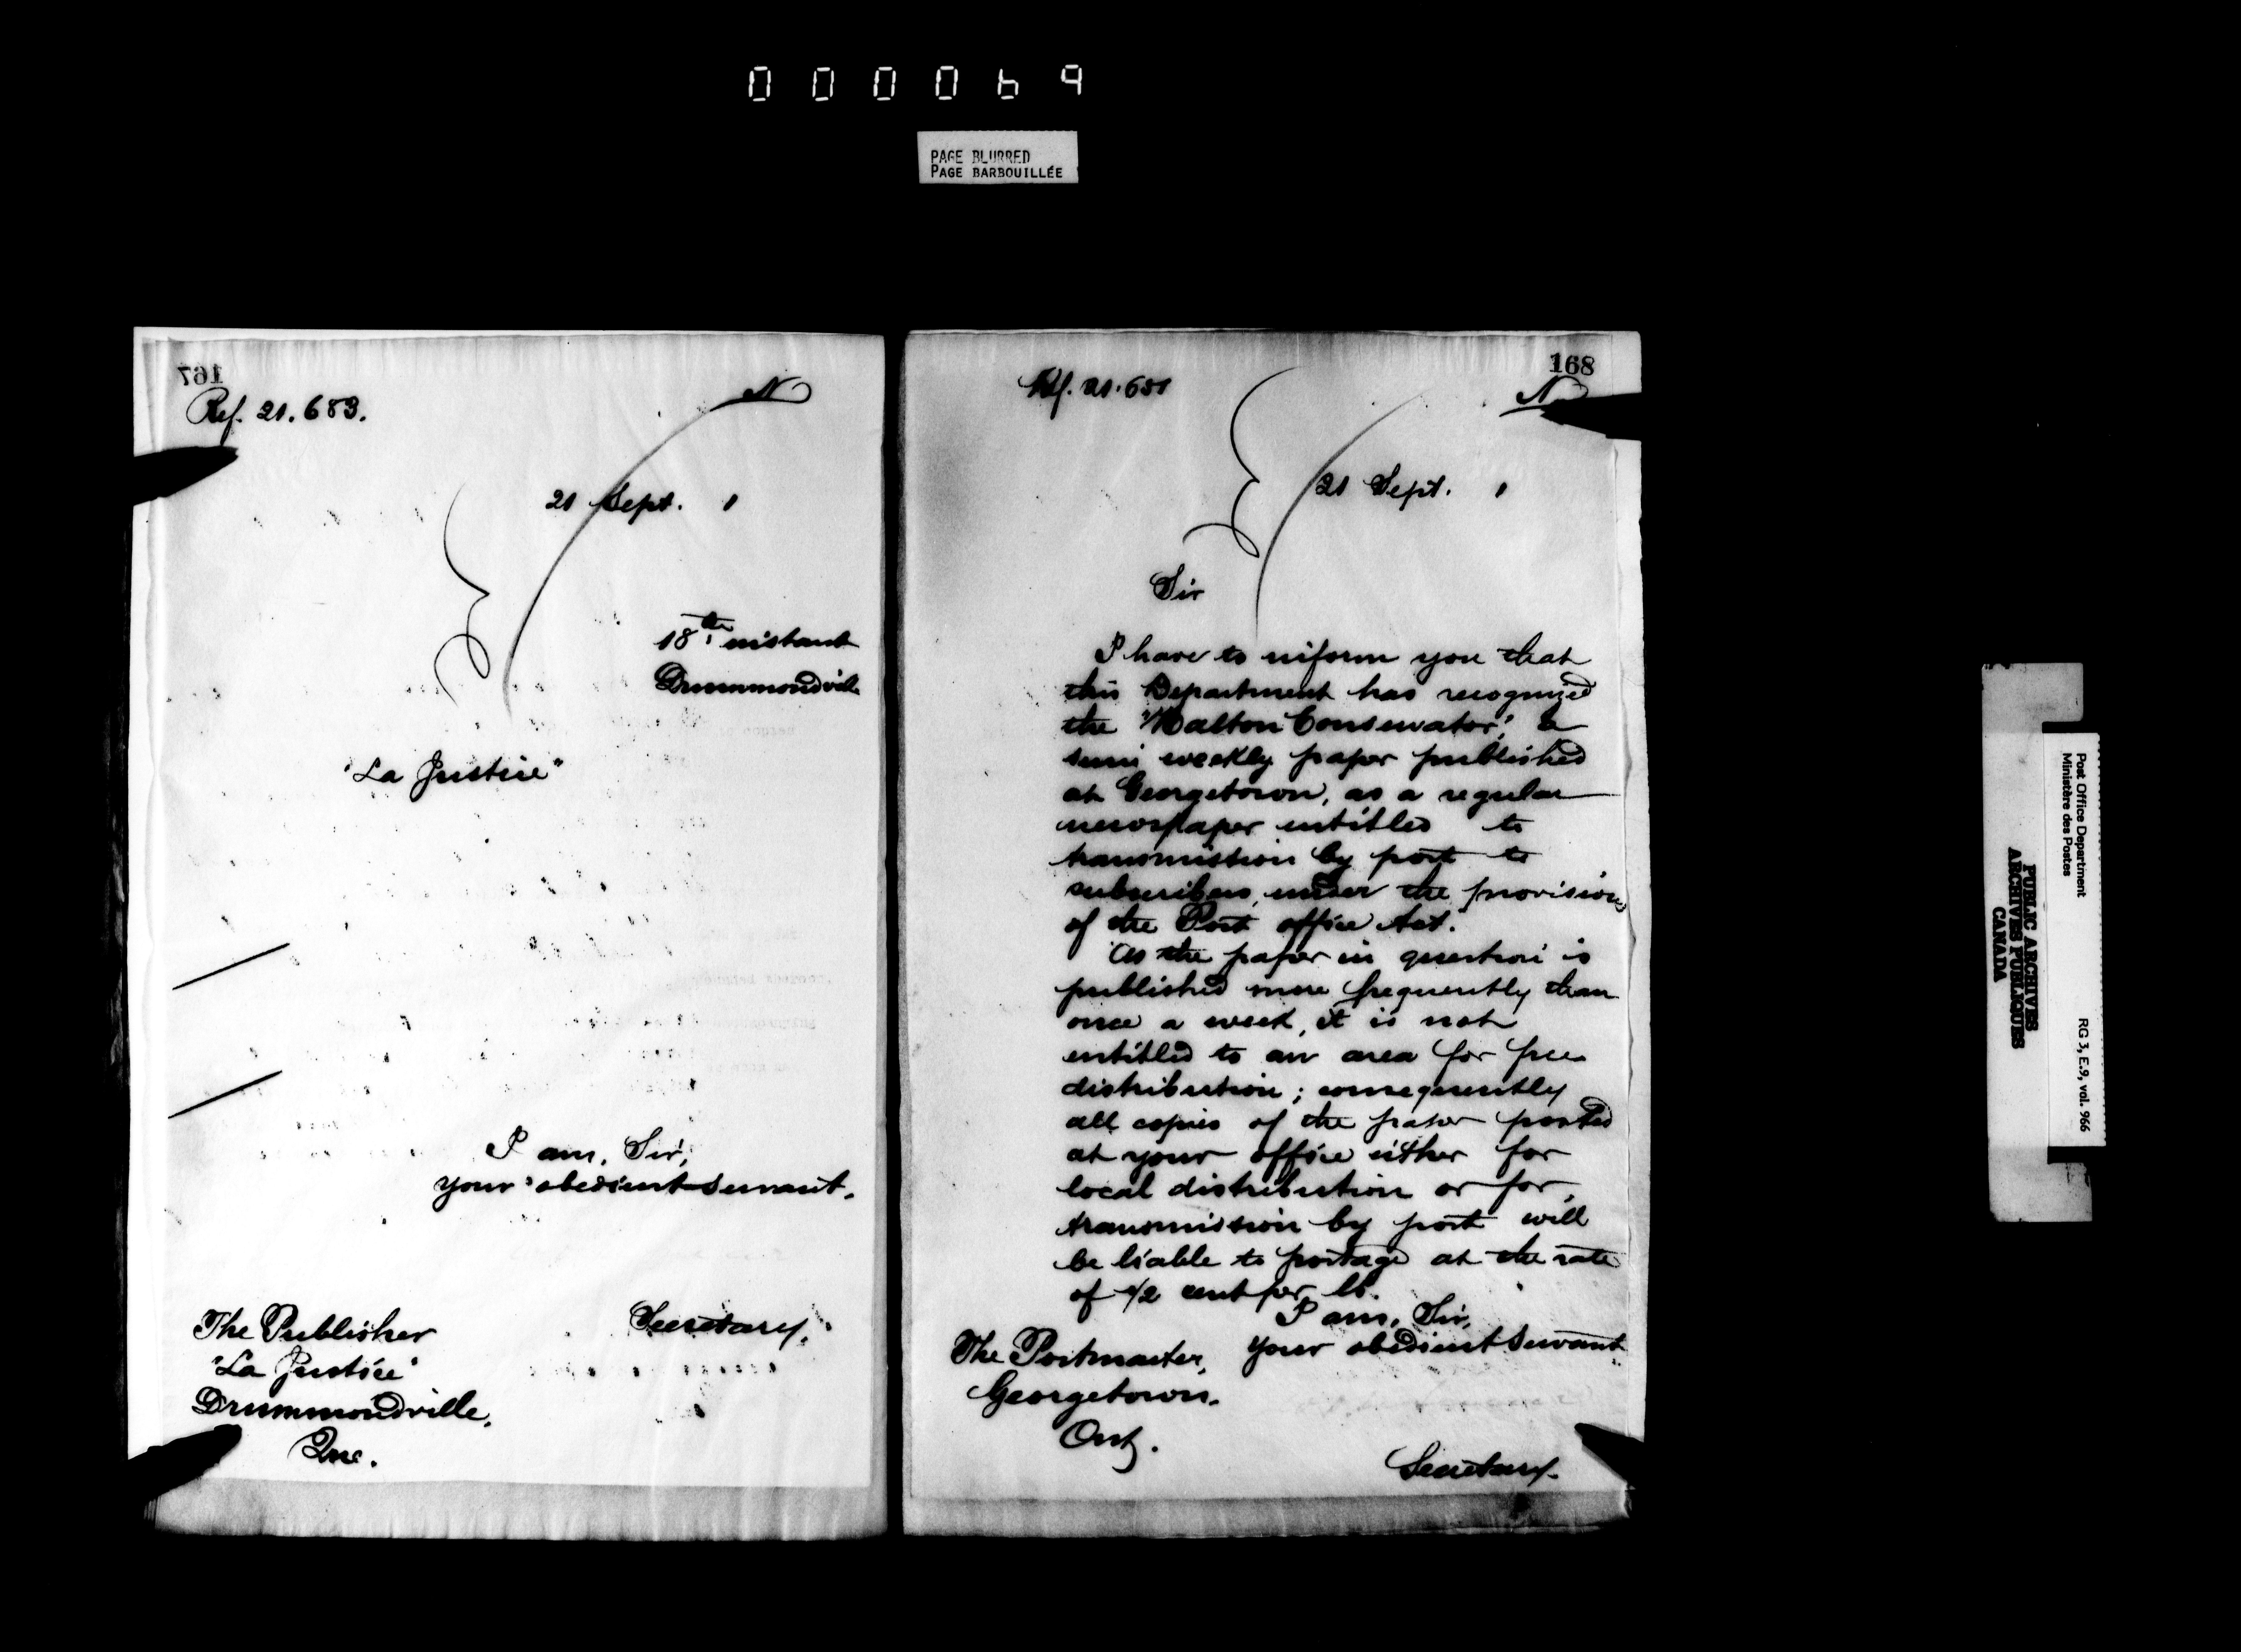 000069
PAGE BLURRED
PAGE BARBOUILLÉE
167
Ref. 21.683.
N
21 Sept. 1
18th instant
Drummondville
"La Justice"
I am, Sir,
your obedient servant.
Secretary.
The Publisher
"La Justice"
Drummondville,
Que.
168
Ref. 21.681
N
21 Sept. 1
Sir
I have to inform you that
this Department has recognized
the "Halton Conservator," a
semi weekly paper published
at Georgetown, as a regular
newspaper entitled to
transmission by post to
subscribers, under the provisions
of the Post office Act.
As the paper in question is
published more frequently than
once a week, it is not
entitled to an area for free
distribution; consequently
all copies of the paper posted
at your office either for
local distribution or for
transmission by post will
be liable to postage at the rate
of 1/2 cent per lb.
I am, Sir,
your obedient servant
The Postmaster,
Georgetown.
Ont.
Secretary.
Post Office Department
Ministère des Postes
RG 3, E.9, vol. 966
PUBLIC ARCHIVES
ARCHIVES PUBLIQUES
CANADA